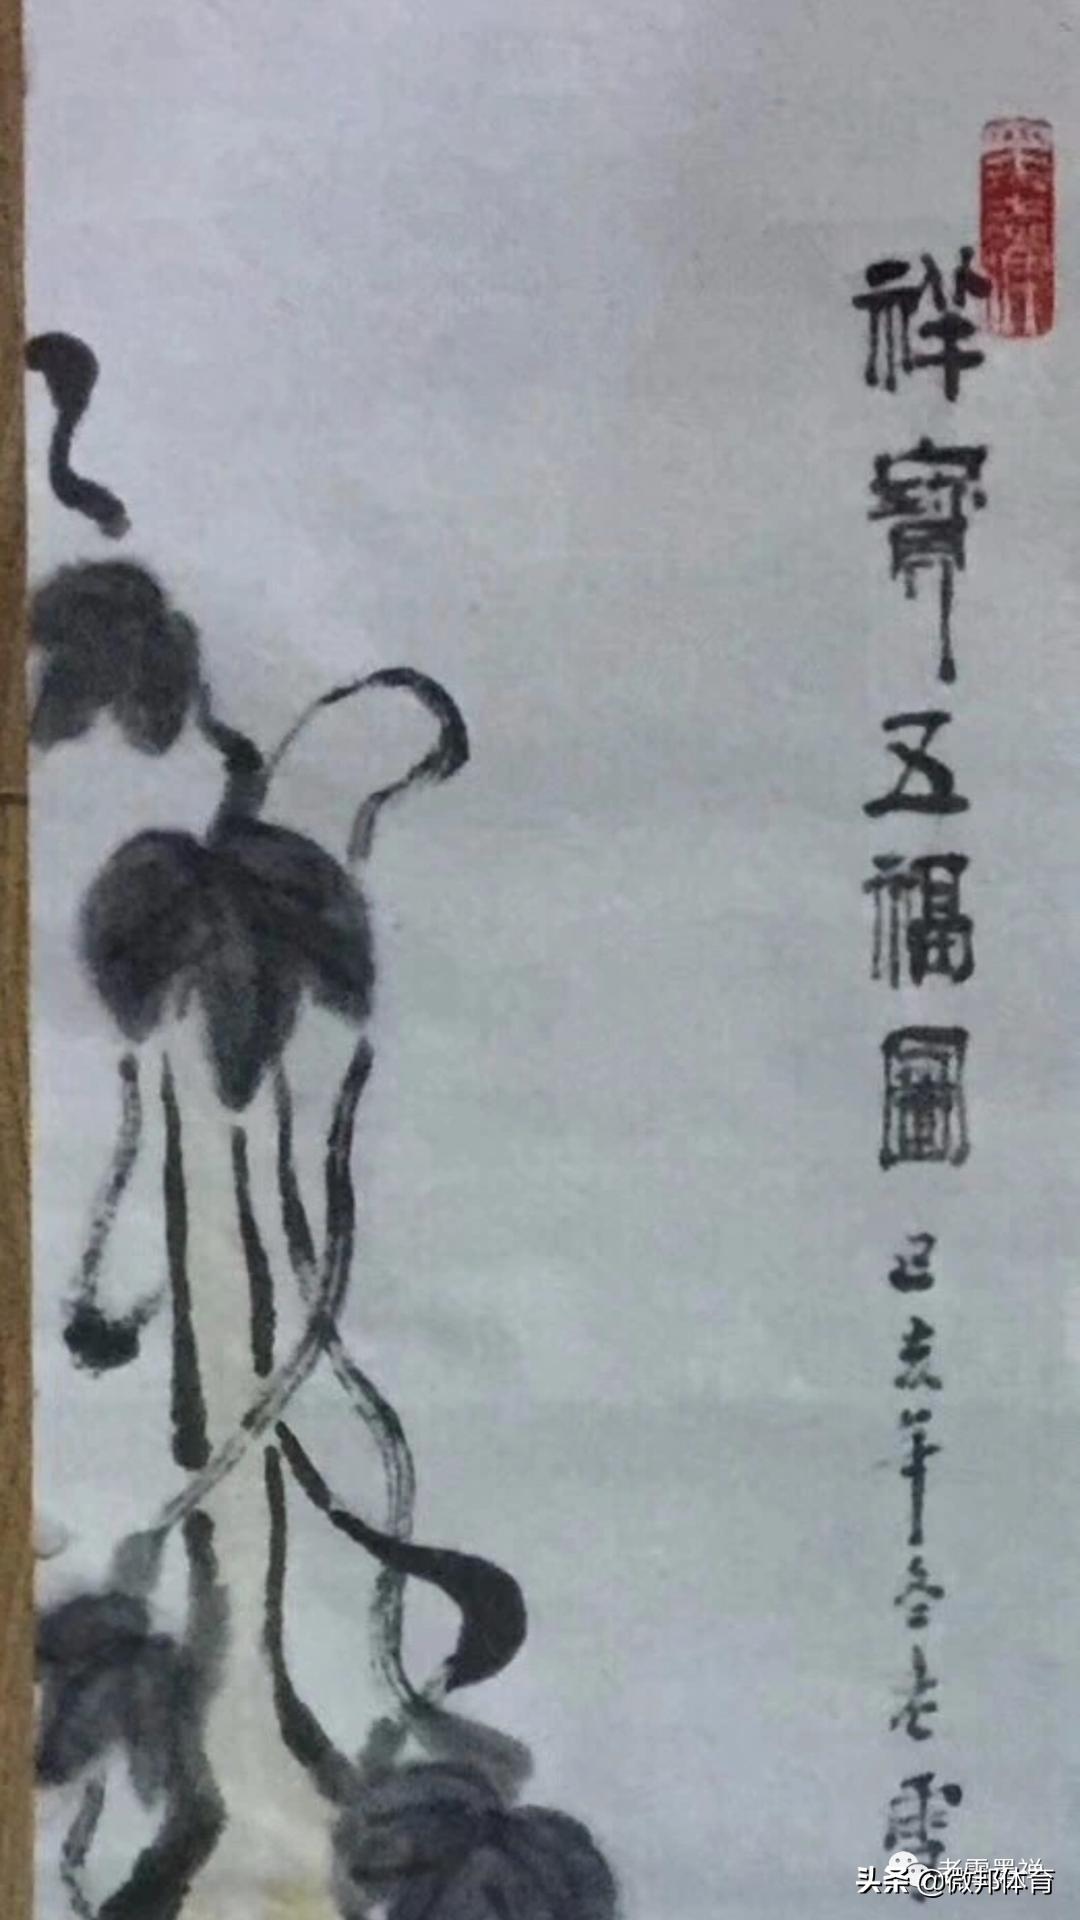 祥寶五福圖
己亥年冬老雷
老雷墨禅
头条 @微邦体育